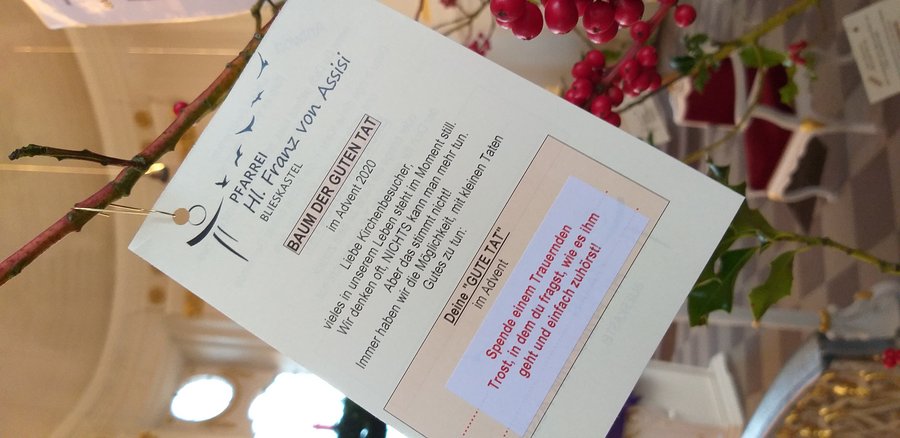 PFARREI
Hl. Franz von Assisi
BLIESKASTEL
BAUM DER GUTEN TAT
im Advent 2020
Liebe Kirchenbesucher,
vieles in unserem Leben steht im Moment still.
Wir denken oft, NICHTS kann man mehr tun.
Aber das stimmt nicht!
Immer haben wir die Möglichkeit, mit kleinen Taten
Gutes zu tun:
Deine "GUTE TAT"
im Advent
Spende einem Trauernden
Trost, in dem du fragst, wie es ihm
geht und einfach zuhörst!